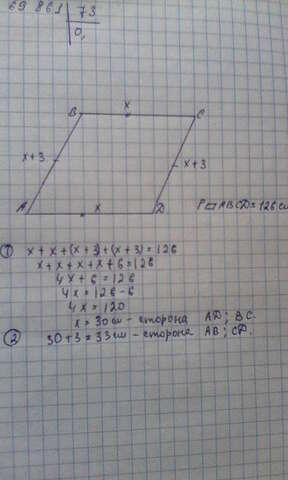 69 861 | 73
0,
B
x
C
x+3
x+3
A
x
D
P▱ABCD=126см
① x+x+(x+3)+(x+3)=126
x+x+x+x+6=126
4x+6=126
4x=126-6
4x=120
x=30см - сторона AD; BC.
② 30+3=33см - сторона AB; CD.